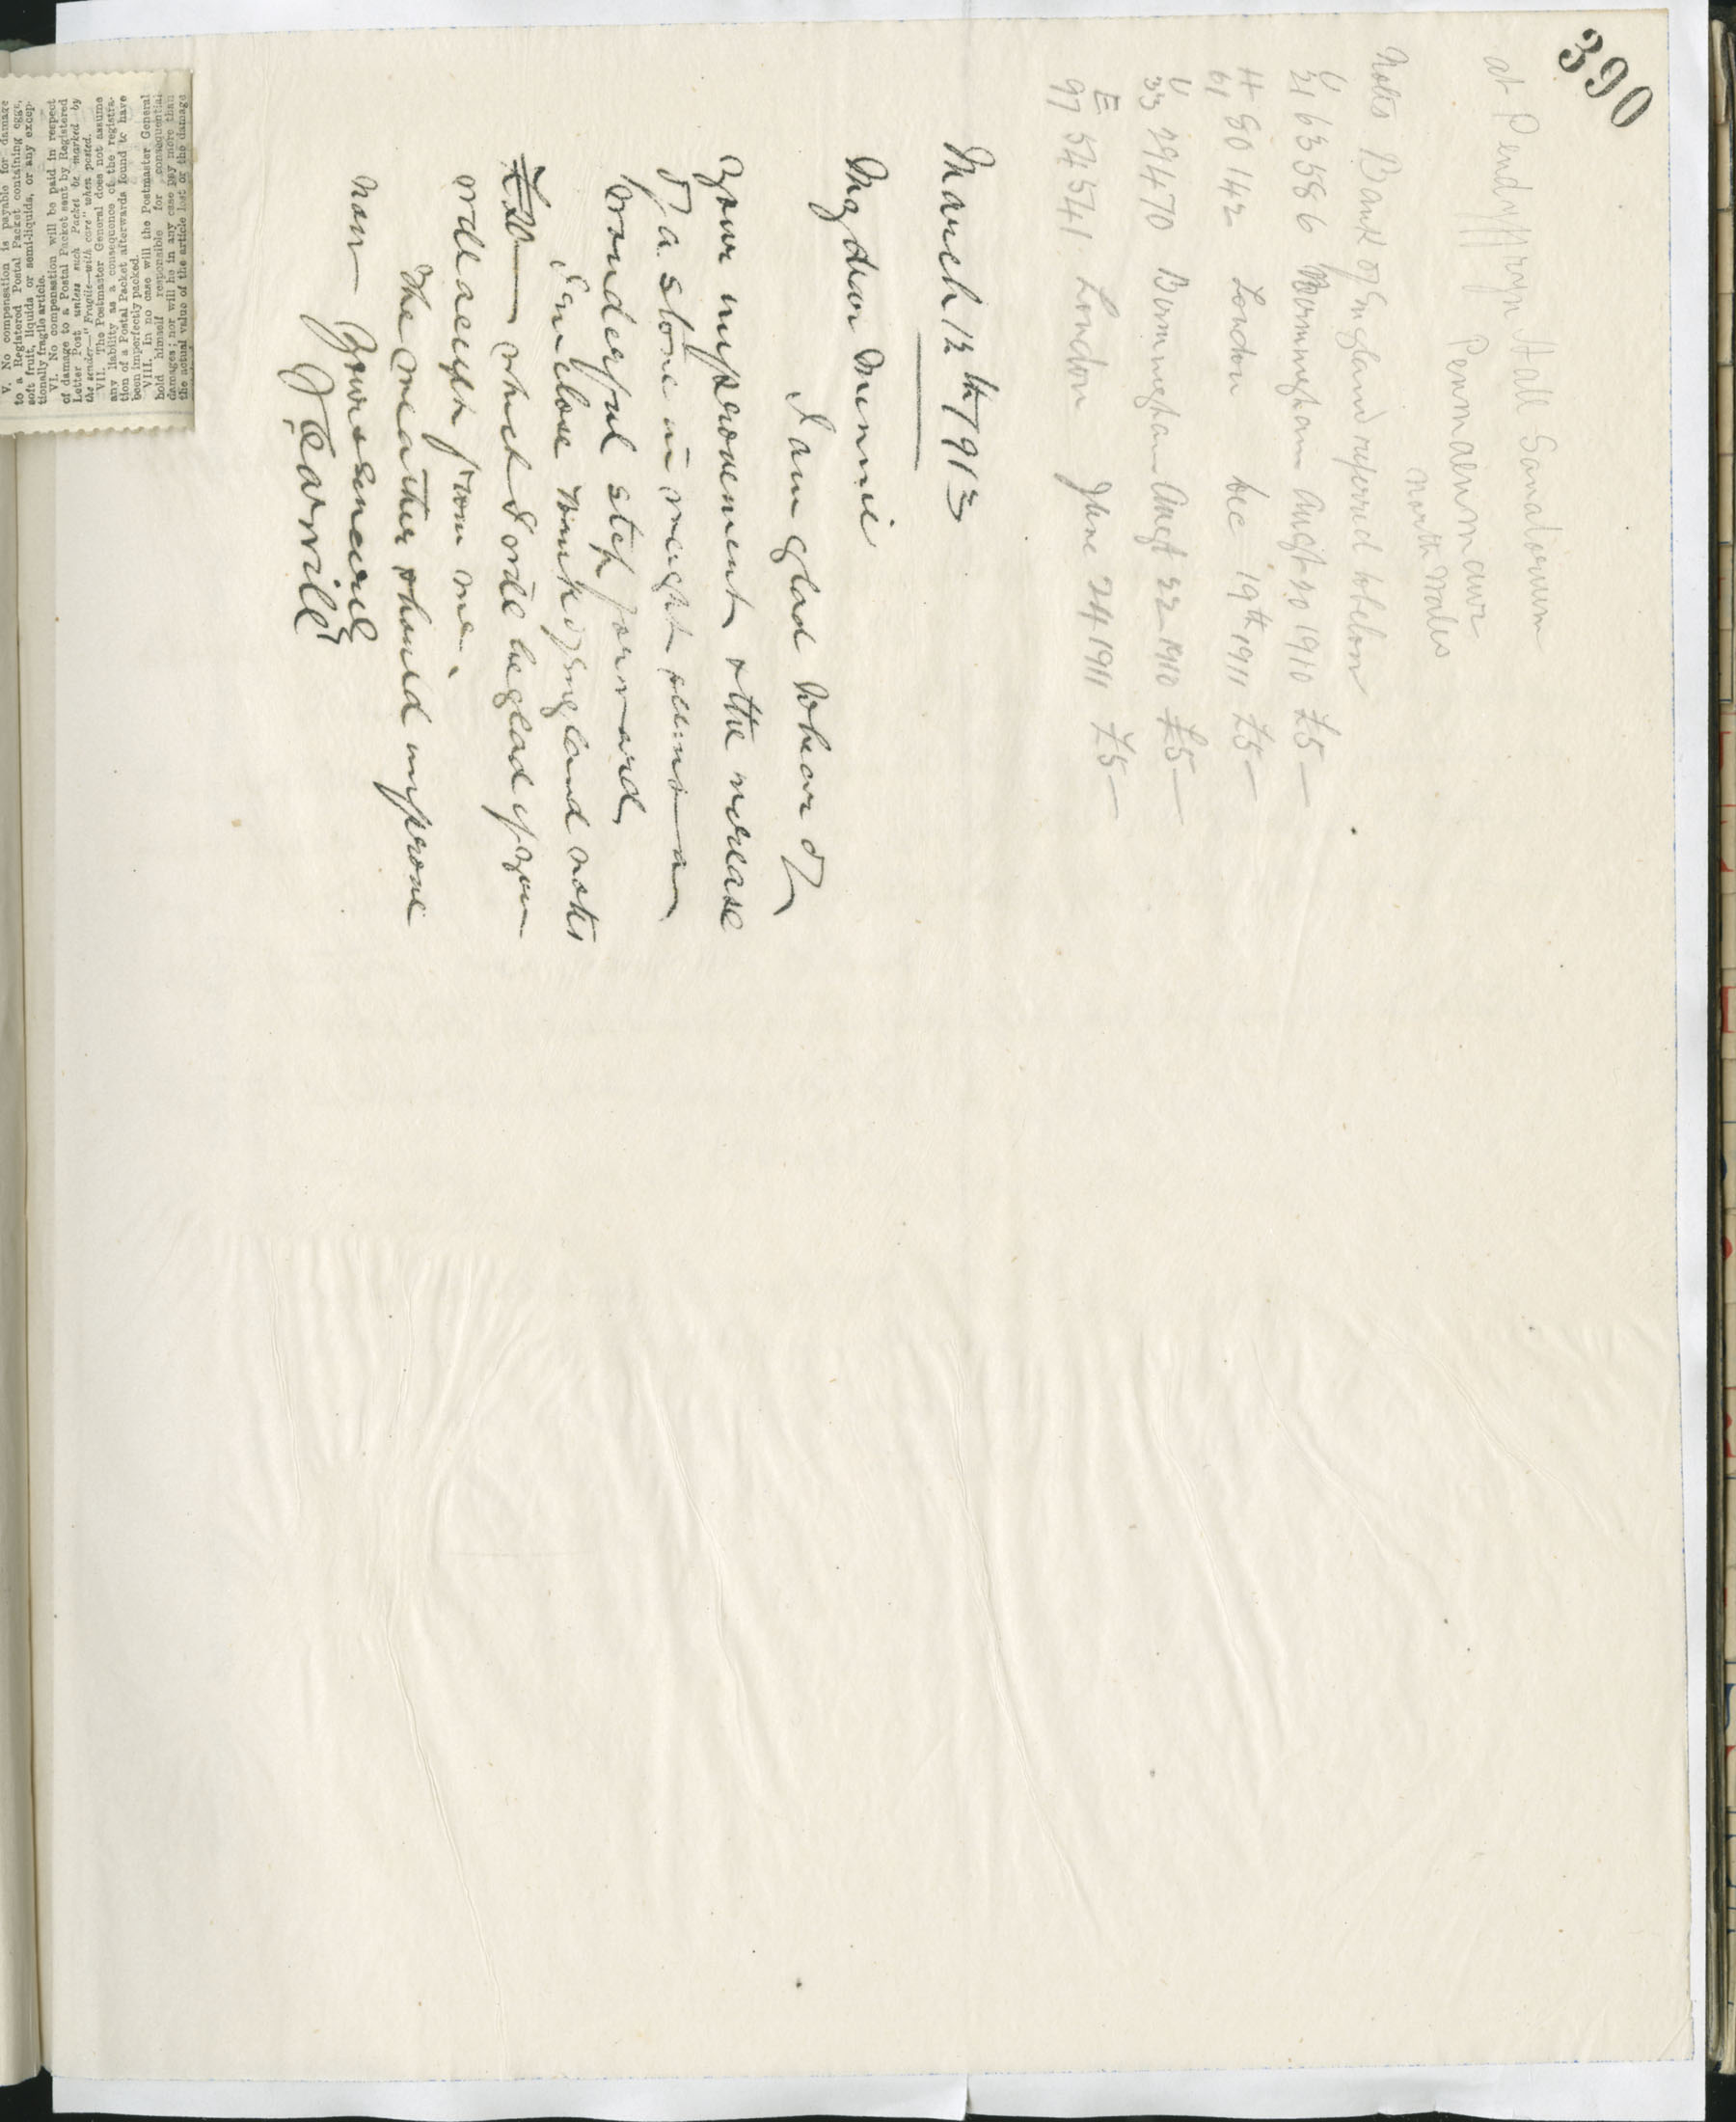 390
at Pendyffryn Hall Sanatorium
Penmaenmawr
North Wales
Notes Bank of England referred to below
U
21 63586 Birmingham Augst 20 1910 £5—
H
61 50142 London Dec 19th 1911 £5—
U
33 29470 Birmingham Augt 22 1910 £5—
E
97 54541 London June 24 1911 £5—
March 12th 1913
My dear Minnie
I am glad to hear of
your improvement & the increase
of a stone in weight seems a
wonderful step forward.
I enclose Bank of England notes
£20— which I will be glad if you
will accept from me.
The weather should improve
now Yours sincerely
J Carvill
V. No compensation is payable for damage
to a Registered Postal Packet containing eggs,
soft fruit, liquids or semi-liquids, or any excep-
tionally fragile article.
VI. No compensation will be paid in respect
of damage to a Postal Packet sent by Registered
Letter Post unless such Packet be marked by
the sender—"Fragile—with care" when posted.
VII. The Postmaster General does not assume
any liability as a consequence of the registra-
tion of a Postal Packet afterwards found to have
been imperfectly packed.
VIII. In no case will the Postmaster General
hold himself responsible for consequential
damages; nor will he in any case pay more than
the actual value of the article lost or the damage